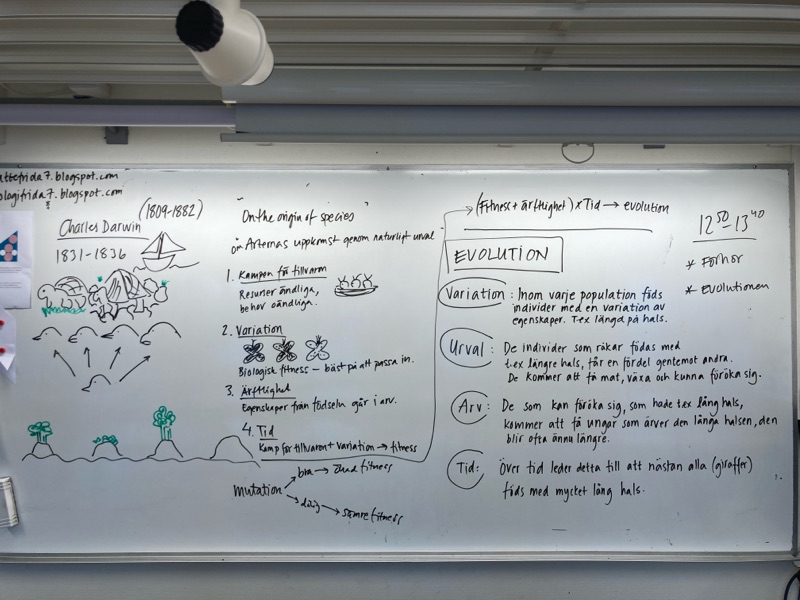 attefrida7.blogspot.com
ologifrida7.blogspot.com
Charles Darwin
(1809-1882)
1831-1836
On the origin of species
Arternas uppkomst genom naturligt urval
1. Kampen för tillvaron
Resurser ändliga,
behov oändliga.
2. Variation
Biologisk fitness – bäst på att passa in.
3. Ärftlighet
Egenskaper från födseln går i arv.
4. Tid
Kamp för tillvaron + Variation → fitness
mutation
bra → ökad fitness
dålig → sämre fitness
(Fitness + ärftlighet) x Tid → evolution
EVOLUTION
Variation: Inom varje population föds
individer med en variation av
egenskaper. T.ex längd på hals.
Urval: De individer som råkar födas med
t.ex längre hals, får en fördel gentemot andra.
De kommer att få mat, växa och kunna föröka sig.
Arv: De som kan föröka sig, som hade t.ex lång hals,
kommer att få ungar som ärver den långa halsen, den
blir ofta ännu längre.
Tid: Över tid leder detta till att nästan alla (giraffer)
föds med mycket lång hals.
12 50 - 13 40
* Förhör
* Evolutionen